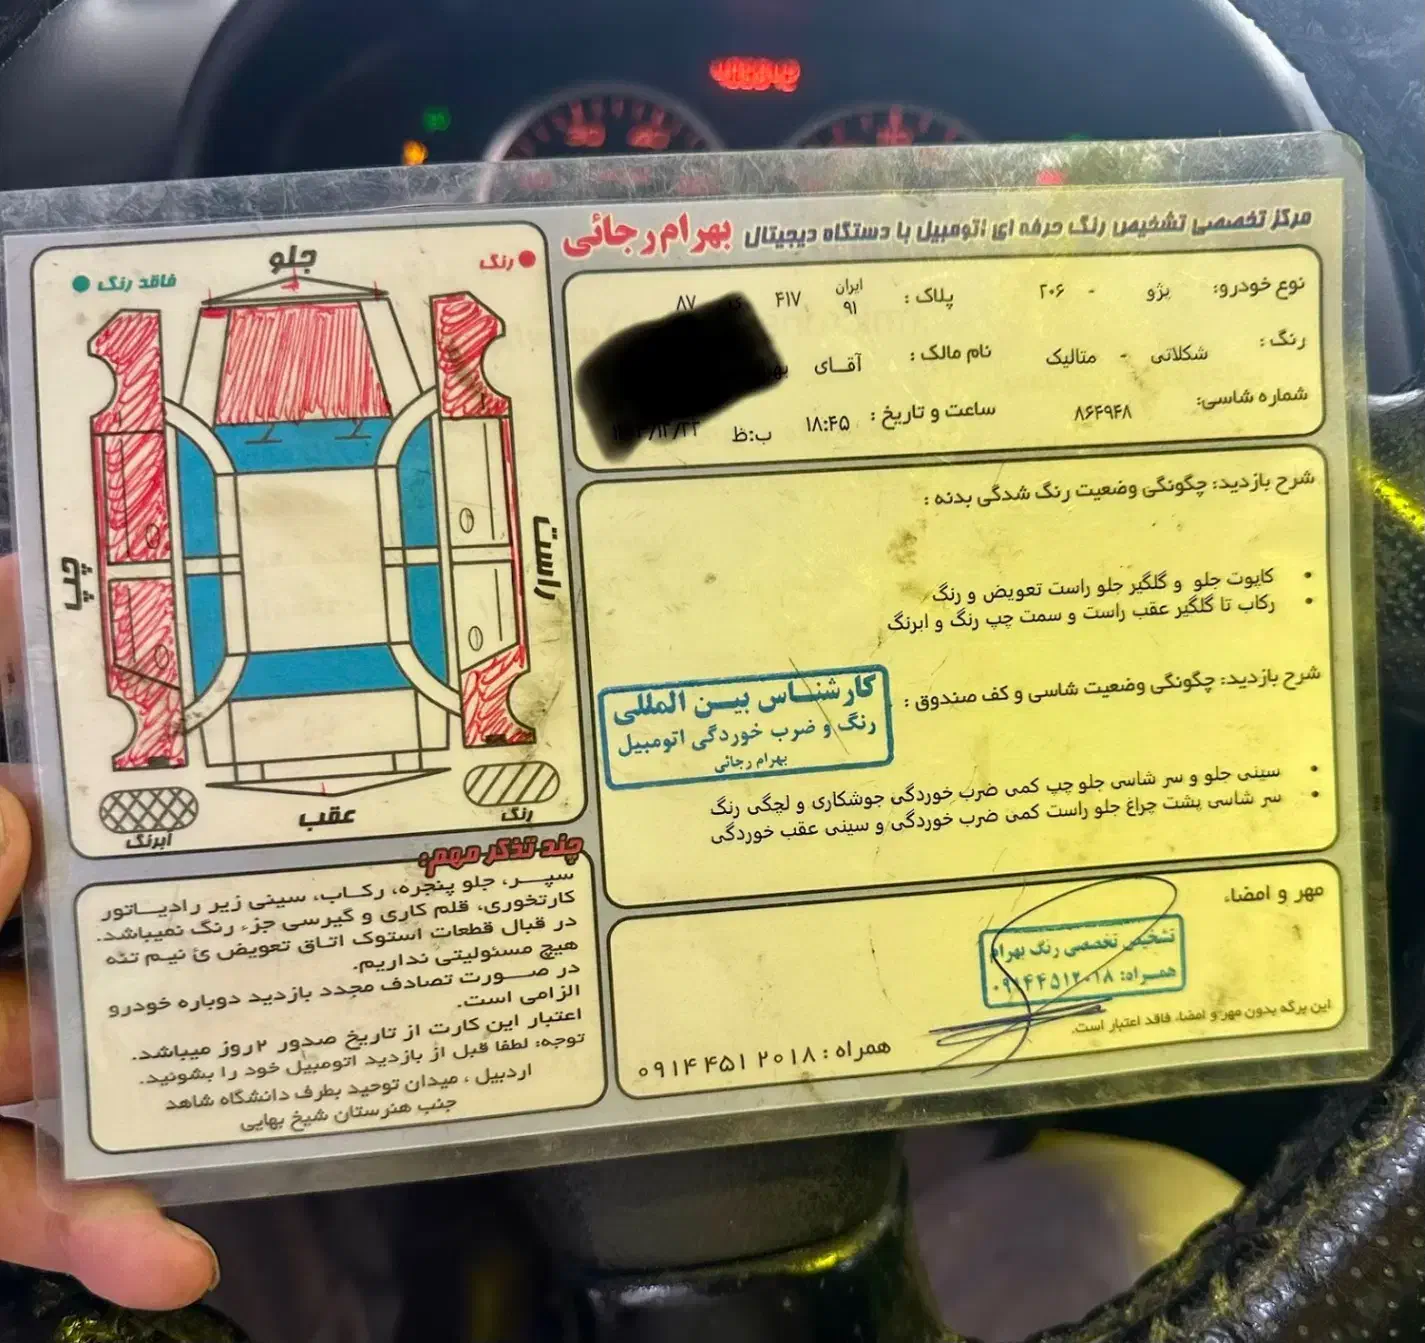 مرکز تخصصی تشخیص رنگ حرفه ای اتومبیل با دستگاه دیجیتال بهرام رجائی
نوع خودرو: پژو - ۲۰۶ پلاک: ایران ۹۱ ۴۱۷ ۸۷
رنگ: شکلاتی - متالیک نام مالک: آقـای
شماره شاسی: ۸۶۴۹۴۸ ساعت و تاریخ: ۱۸:۴۵ ب:ظ
شرح بازدید: چگونگی وضعیت رنگ شدگی بدنه:
• کاپوت جلو و گلگیر جلو راست تعویض و رنگ
• رکاب تا گلگیر عقب راست و سمت چپ رنگ و ابرنگ
شرح بازدید: چگونگی وضعیت شاسی و کف صندوق:
کارشنـاس بیـن المللی
رنگ و ضرب خوردگی اتومبیل
بهرام رجائی
• سینی جلو و سر شاسی جلو چپ کمی ضرب خوردگی جوشکاری و لچگی رنگ
• سر شاسی پشت چراغ جلو راست کمی ضرب خوردگی و سینی عقب خوردگی
مهر و امضاء
تشخیص تخصصی رنگ بهرام
همـراه: ۰۹۱۴۴۵۱۲۰۱۸
این برگه بدون مهر و امضاء، فاقد اعتبار است.
همراه: ۰۹۱۴ ۴۵۱ ۲۰۱۸
جلو
رنگ
فاقد رنگ
راست
چپ
عقب
رنگ
ابرنگ
چند تذکر مهم:
سپـر، جلو پنجره، رکـاب، سینی زیر رادیـاتور
کارتخوری، قلم کاری و گیرسی جزء رنگ نمیباشد.
در قبال قطعات استوک اتاق تعویض ئ نیم تنه
هیچ مسئولیتی نداریم.
در صـورت تصادف مجدد بازدید دوباره خودرو
الزامی است.
اعتبار این کارت از تاریخ صدور ۲ روز میباشد.
توجه: لطفا قبل از بازدید اتومبیل خود را بشوئید.
اردبیل، میدان توحید بطرف دانشگاه شاهد
جنب هنرستان شیخ بهایی